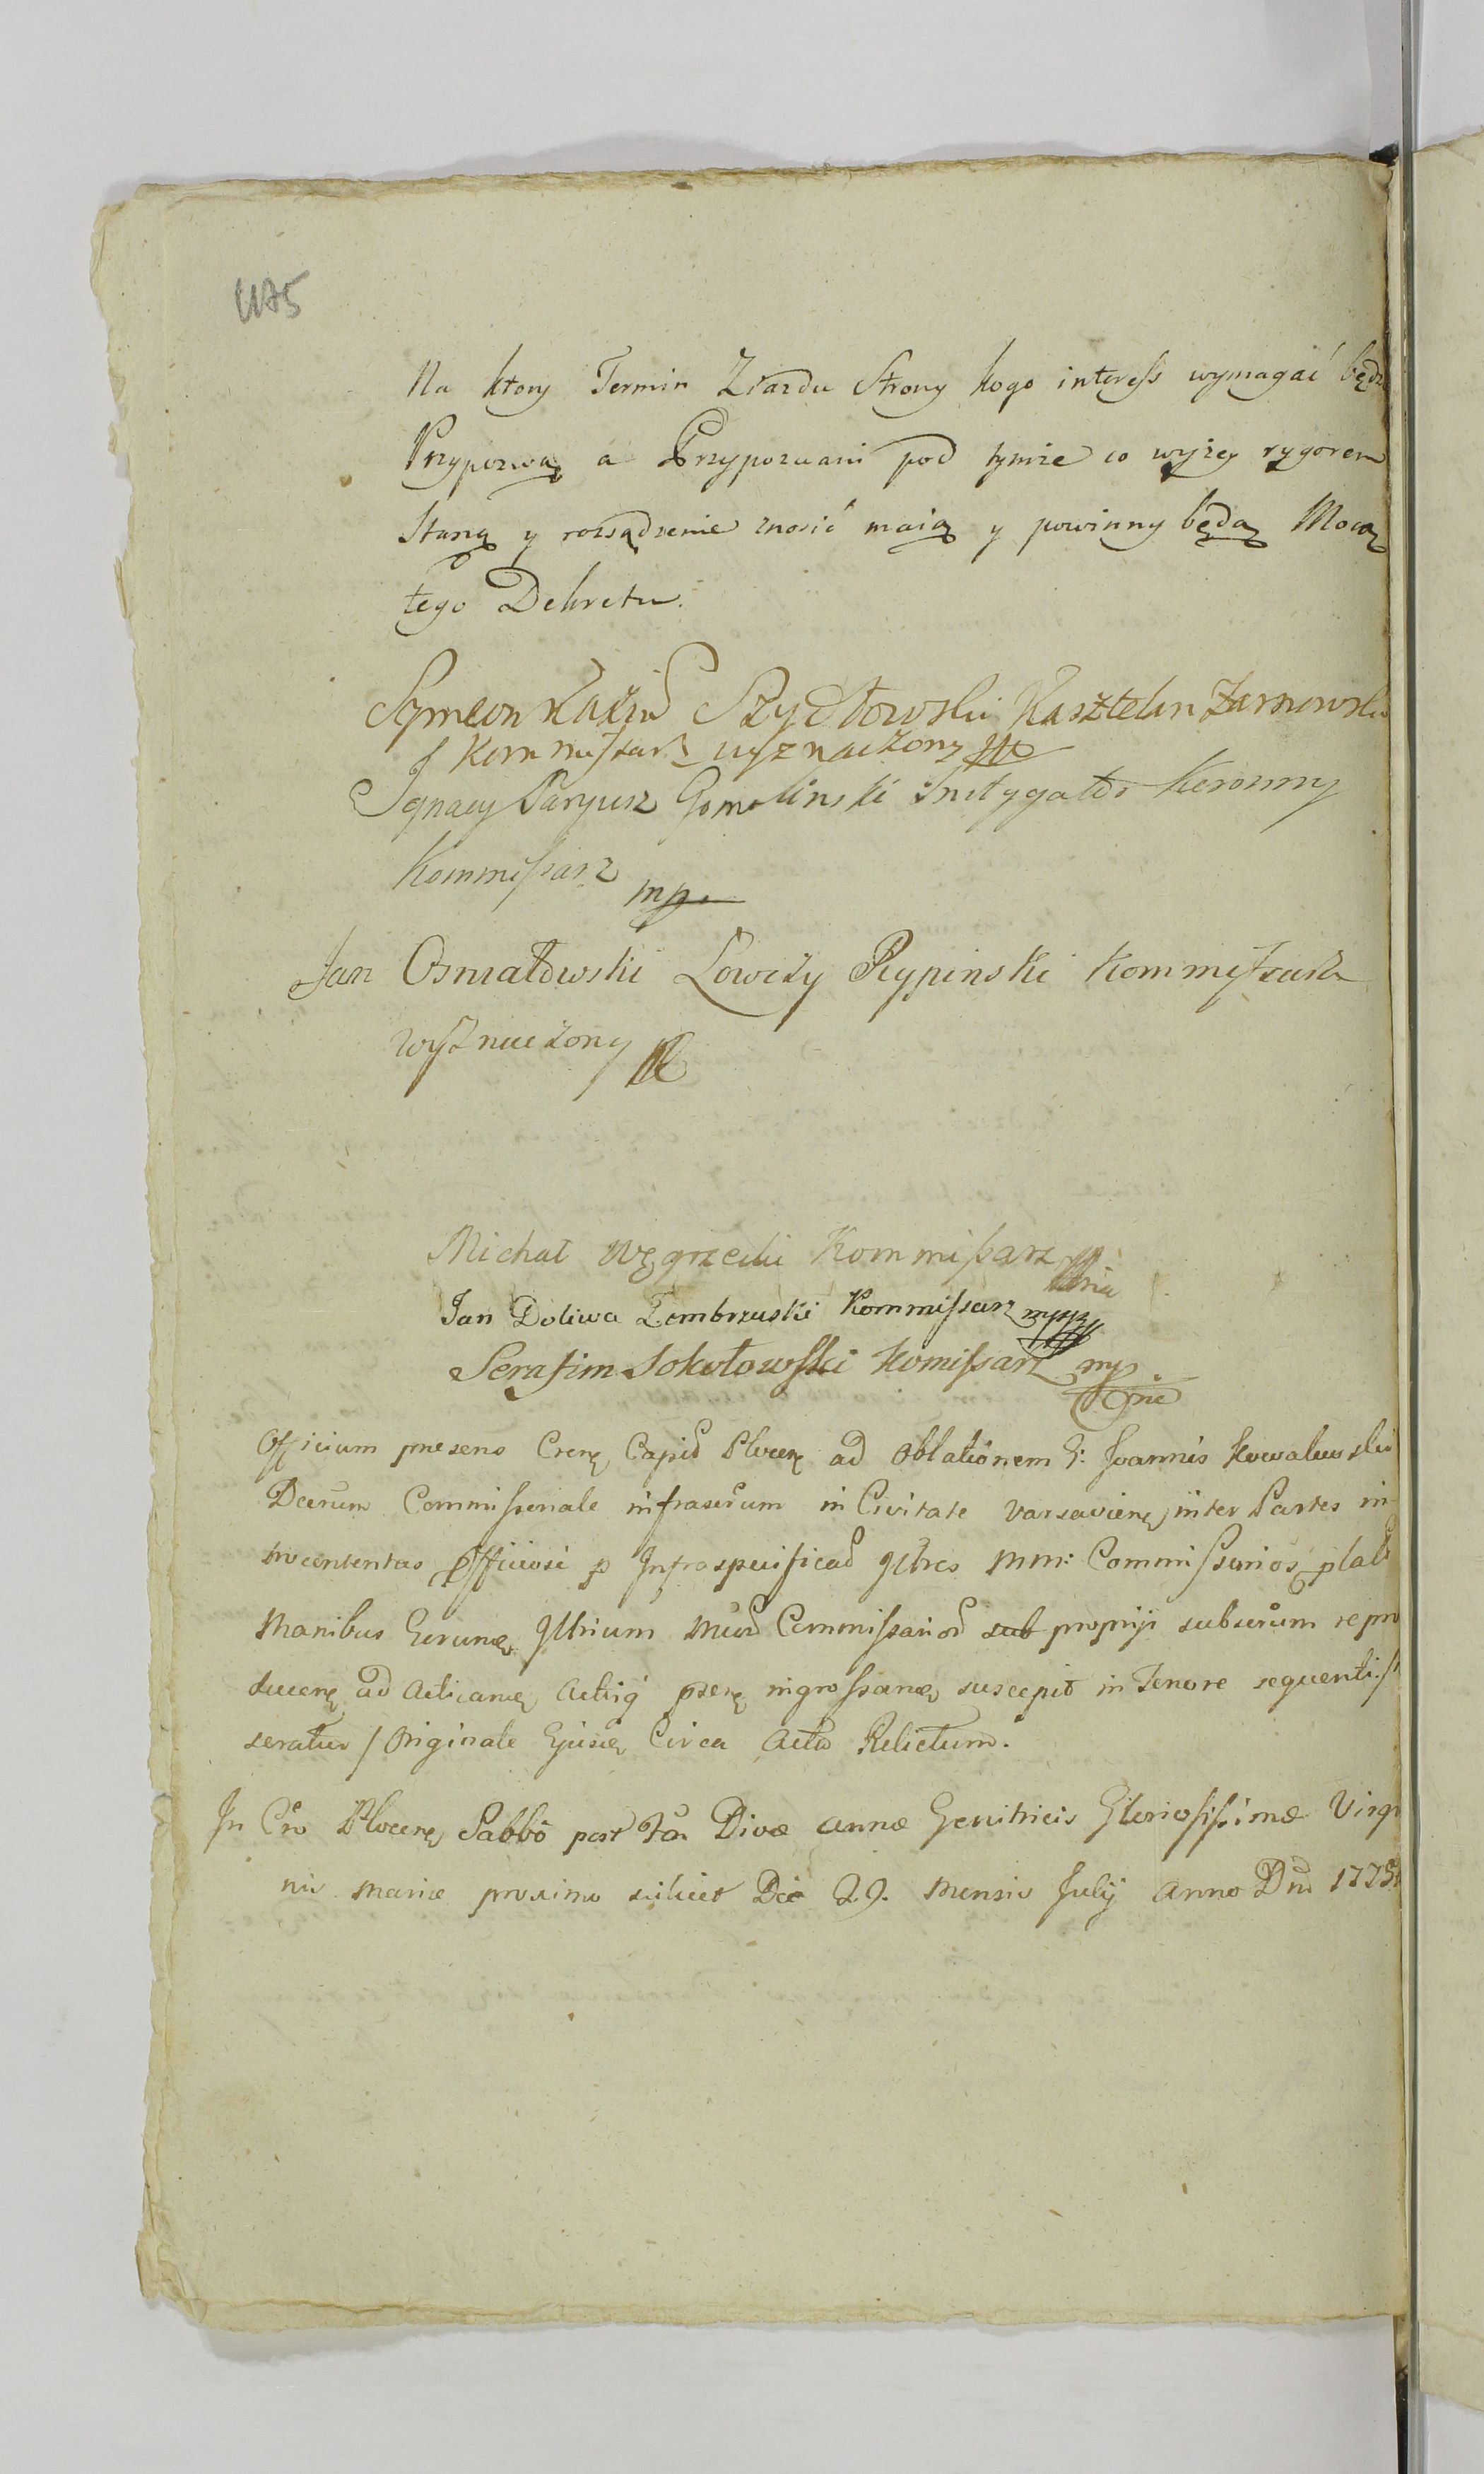 475
Na ktory Termin Ziazdu Strony kogo interess wymagać będz
Przypozwą a Przypozwani pod tymże co wyżey rygorem
Staną y rozsądzenie znosić maią y powinny będą Mocą
tego Dekretu.
Symeon Kaźim Szydłowski Kasztelan Żarnowski
Kommissarz wyznaczony
Ignacy Paryusz Gomolinski Instygator Koronny
Kommissarz mp
Jan Osmiałowski Łowczy Rypinski Kommissarz
wyznaczony
Michał Węgrzecki Kommissarz
Jan Doliwa Zembrzuski Kommissarz mpp
Serafim Sokołowski Komissarz mp
Officium praesens Ctrenę Capitł Plocenę ad oblationem G: Joannis Kowalewski
Dcrum Commissoriale infrascrum in Civitate Varsavienę inter Partes in
trocontentas Officiose p Infraspecificatł Illtres MM: Commissarios, plat
Manibus Eorundę Illtrium MM Commissarior sub proprijs subscrum repro
ducenę ad Acticandę Actisq psenę ingrossandę suscepit in Tenore sequenti /
seratur / Originale Ejusdę Circa Acta Relictum.
In Cro Plocenę Sabbo post Ftũ Divae Annae Genitricis Gloriosissimae Virgi
nis Mariae proximo scilicet Die 29. Mensis Julij Anno Dni 1775